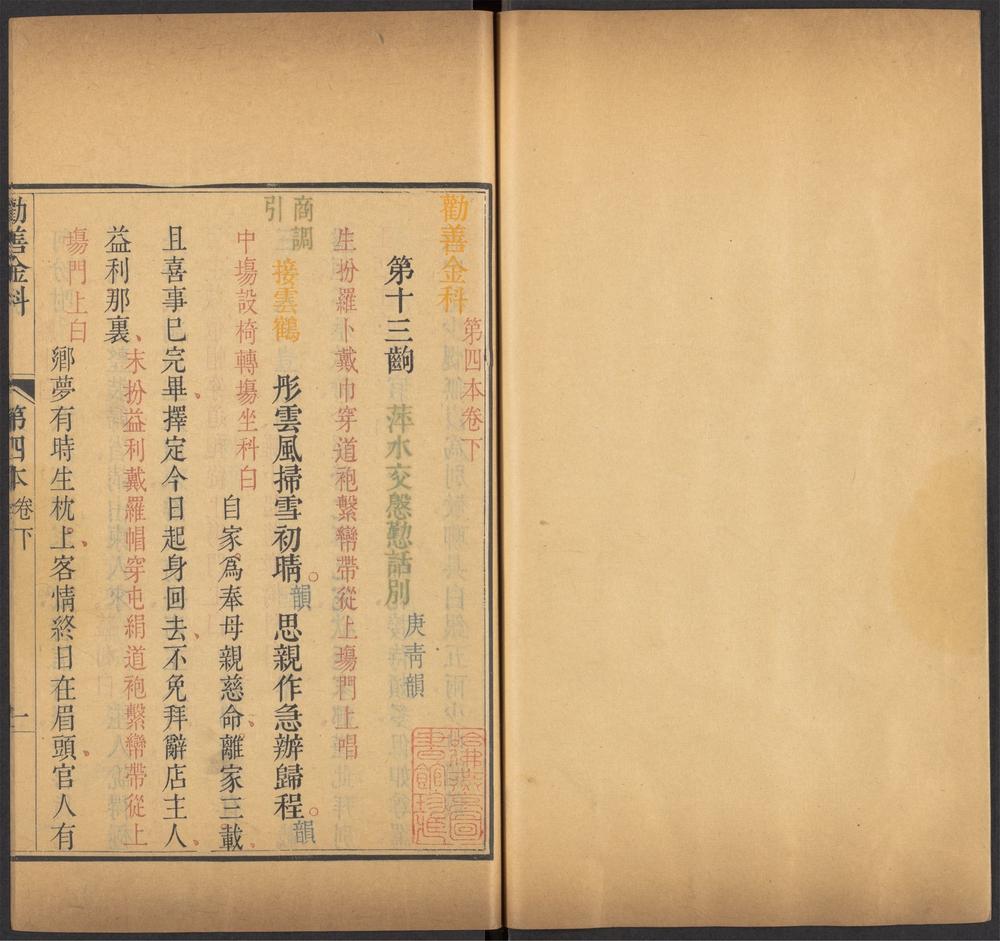 勸善金科
第四本卷下
第十三齣
萍水交慇懃話別
庚青韻
生扮羅卜戴巾穿道袍繫縧帶從上塲門上唱
商調
引
接雲鶴
彤雲風掃雪初晴。韻思親作急辦歸程。韻
中塲設椅轉塲坐科白
自家爲奉母親慈命、離家三載、
且喜事已完畢、擇定今日起身回去、不免拜辭店主人、
益利那裏、末扮益利戴羅帽穿屯絹道袍繫縧帶從上
塲門上白
鄉夢有時生枕上、客情終日在眉頭、官人有
勸善金科
第四本卷下
一